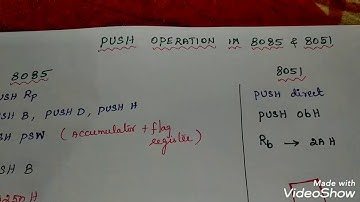 PUSH OPERATION IN 8085 & 8051
8085
PUSH Rp
PUSH B, PUSH D, PUSH H
PUSH PSW (Accumulator + flag
register)
PUSH B
8250 H
8051
PUSH direct
PUSH 06H
R6 → 2A H
Made with
VideoShow